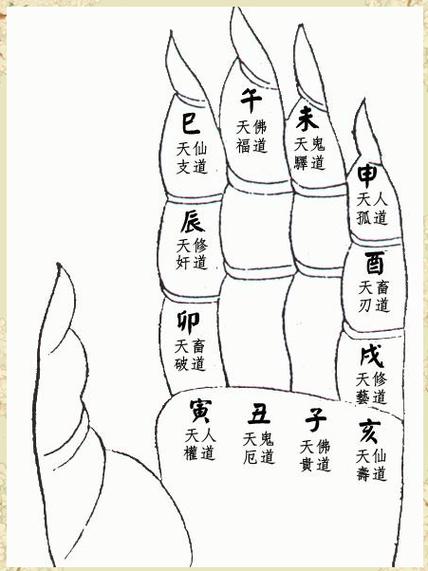 午
佛道
天福
未
鬼道
天驛
巳
仙道
天支
申
人道
天孤
辰
修道
天奸
酉
畜道
天刃
卯
畜道
天破
戌
修道
天藝
寅
人道
天權
丑
鬼道
天厄
子
佛道
天貴
亥
仙道
天壽